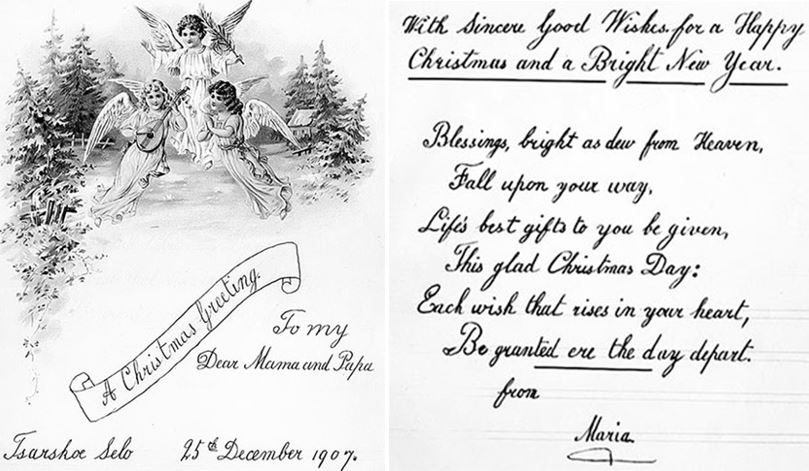 A Christmas Greeting.
To my
Dear Mama and Papa
Tsarshoe Selo 25th December 1907.
With Sincere Good Wishes for a Happy
Christmas and a Bright New Year.
Blessings, bright as dew from Heaven,
Fall upon your way,
Life's best gifts to you be given,
This glad Christmas Day:
Each wish that rises in your heart,
Be granted ere the day depart.
from
Maria